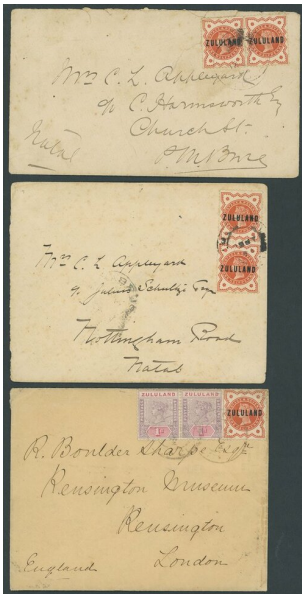 ZULULAND ZULULAND
Mrs C. L. Applegard
c/o C. Harmsworth Esq
Church St.
P.M.Burg
Natal
ZULULAND
ZULULAND
Mrs C. L. Applegard
Nottingham Road
Natal
ZULULAND ZULULAND
ZULULAND
R. Bowlder Sharpe Esqre
Kensington Museum
Kensington
London
England